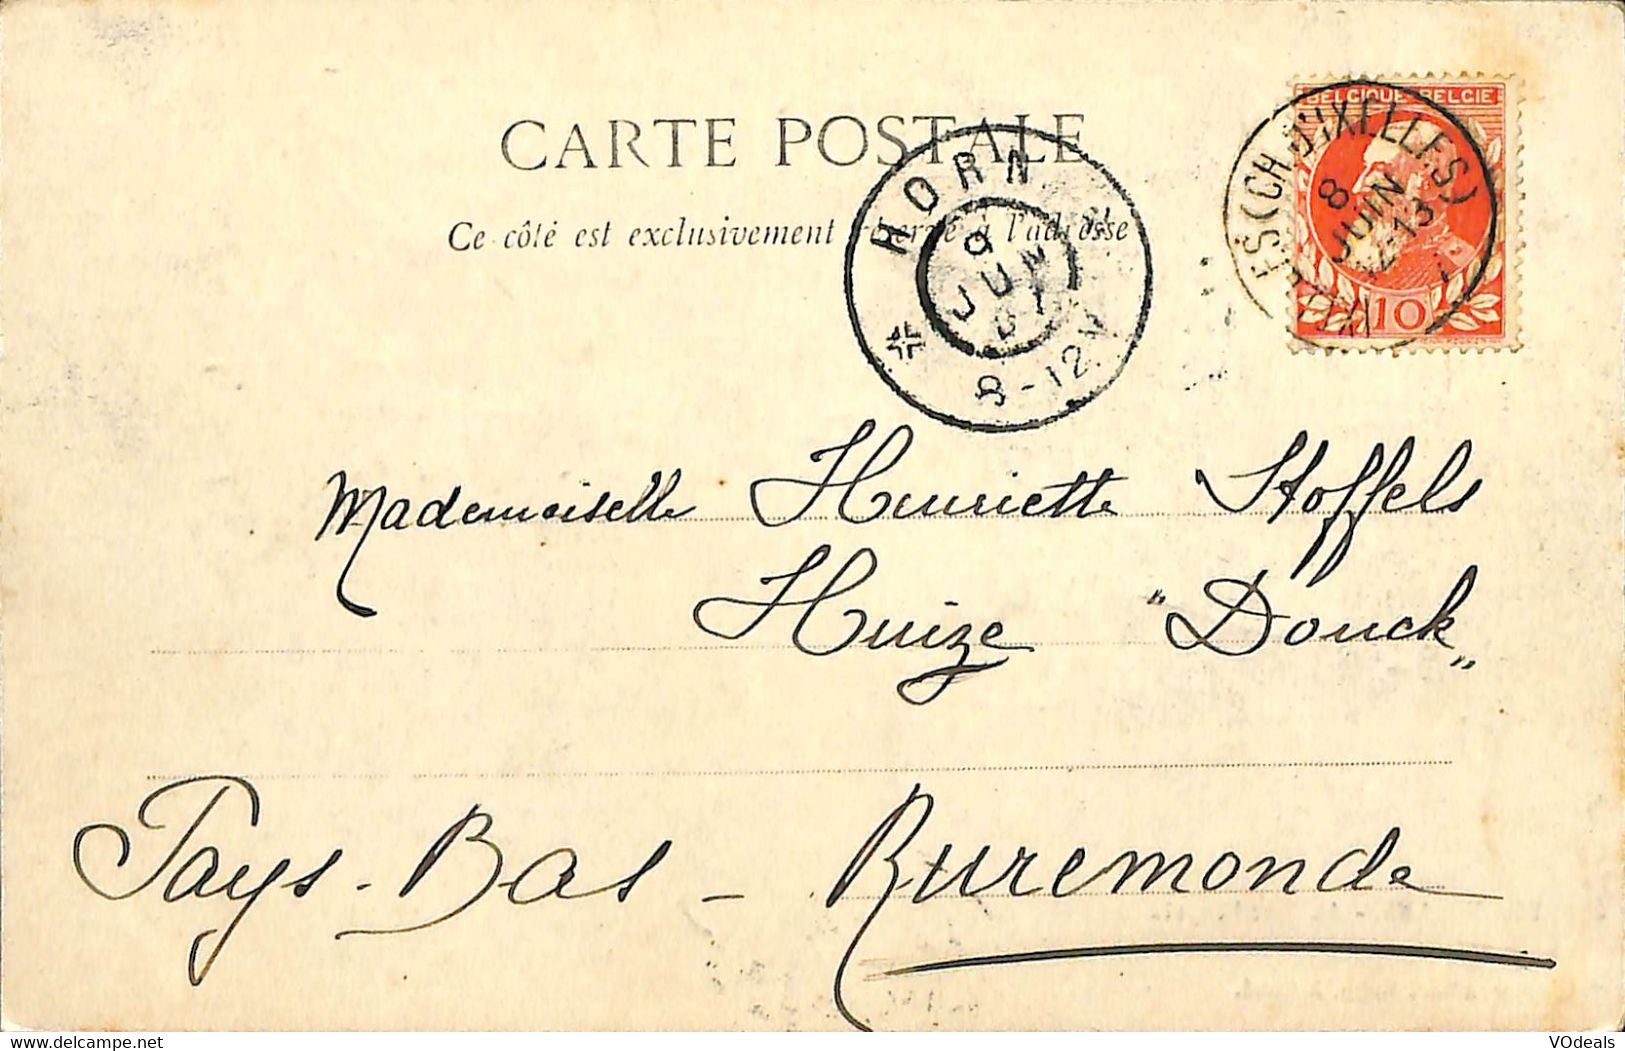 CARTE POSTALE
Ce côté est exclusivement réservé à l'adresse
BELGIQUE BELGIE
10
ES (CH. D'IXELLES)
8
JUIN
12-13
HORN
9
JUN
07
8-12V
Mademoiselle Henriette Stoffels
Huize "Donck"
Pays-Bas - Ruremonde
www.delcampe.net
VOdeals